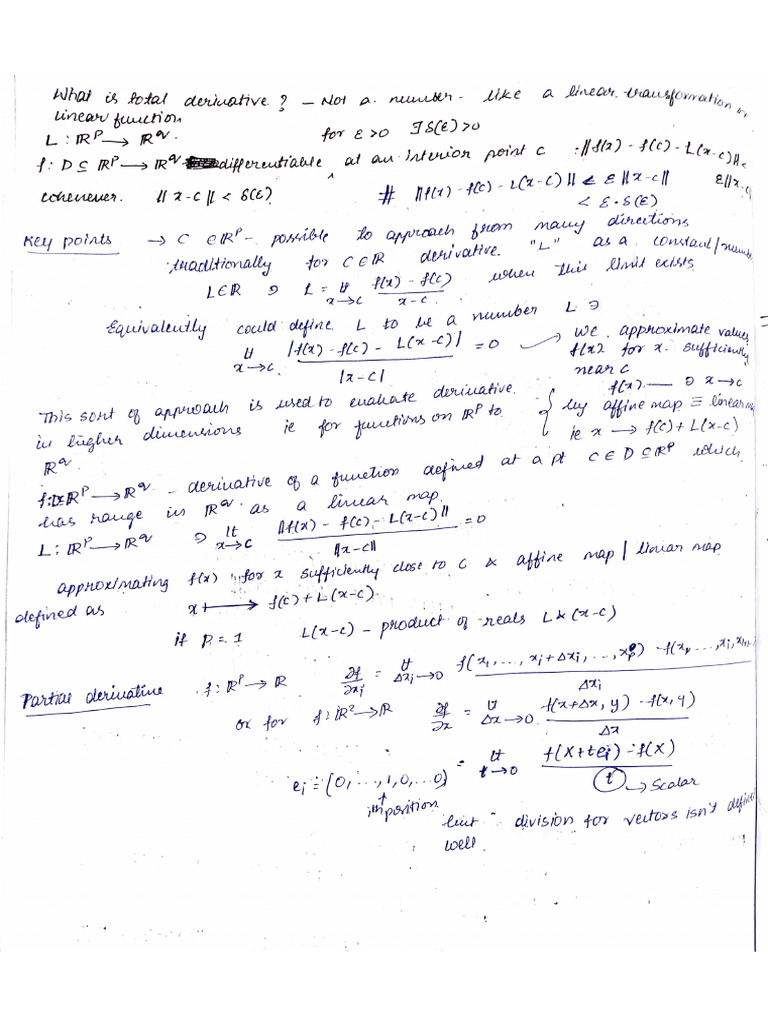 What is total derivative? – Not a number – like a linear transformation or
linear function
L : ℝᵖ → ℝ^q for ε>0 ∃ δ(ε)>0
f : D ⊆ ℝᵖ → ℝ^q differentiable at an interior point c : ||f(x) - f(c) - L(x-c)|| <
whenever ||x-c|| < δ(ε) # ||f(x) - f(c) - L(x-c)|| ≤ ε||x-c|| ε||x-c
< ε·δ(ε)
Key points → C ∈ ℝᵖ – possible to approach from many directions
traditionally for C ∈ ℝ derivative "L" as a constant/number
L ∈ ℝ ∋ L = lt x→c (f(x) - f(c))/(x-c) when this limit exists
Equivalently could define L to be a number L ∋
lt x→c |f(x) - f(c) - L(x-c)| / |x-c| = 0 → we approximate values
f(x) for x sufficiently
near c
f(x) — ∋ x→c
This sort of approach is used to evaluate derivative
in higher dimensions ie for functions on ℝᵖ to { by affine map ≡ linear
ℝ^q ie x → f(c) + L(x-c)
f: D ⊆ ℝᵖ → ℝ^q – derivative of a function defined at a pt C ∈ D ⊆ ℝᵖ which
has range in ℝ^q as a linear map
L : ℝᵖ → ℝ^q ∋ lt x→c ||f(x) - f(c) - L(x-c)|| / ||x-c|| = 0
approximating f(x) for x sufficiently close to c & affine map | linear map
defined as x ↦ f(c) + L(x-c)
if P = 1 L(x-c) – product of reals L & (x-c)
Partial derivative f : ℝᵖ → ℝ ∂f/∂xᵢ = lt Δxᵢ→0 (f(x₁, ..., xᵢ+Δxᵢ, ..., xₚ) - f(x₁, ..., xᵢ, xᵢ₊₁...)/Δxᵢ
or for f : ℝ² → ℝ ∂f/∂x = lt Δx→0 (f(x+Δx, y) - f(x, y))/Δx
eᵢ = (0, ..., 1, 0, ...0) = lt t→0 (f(X+teᵢ) - f(X))/t → Scalar
↑
iᵗʰ position
but division for vectors isn't defined
well